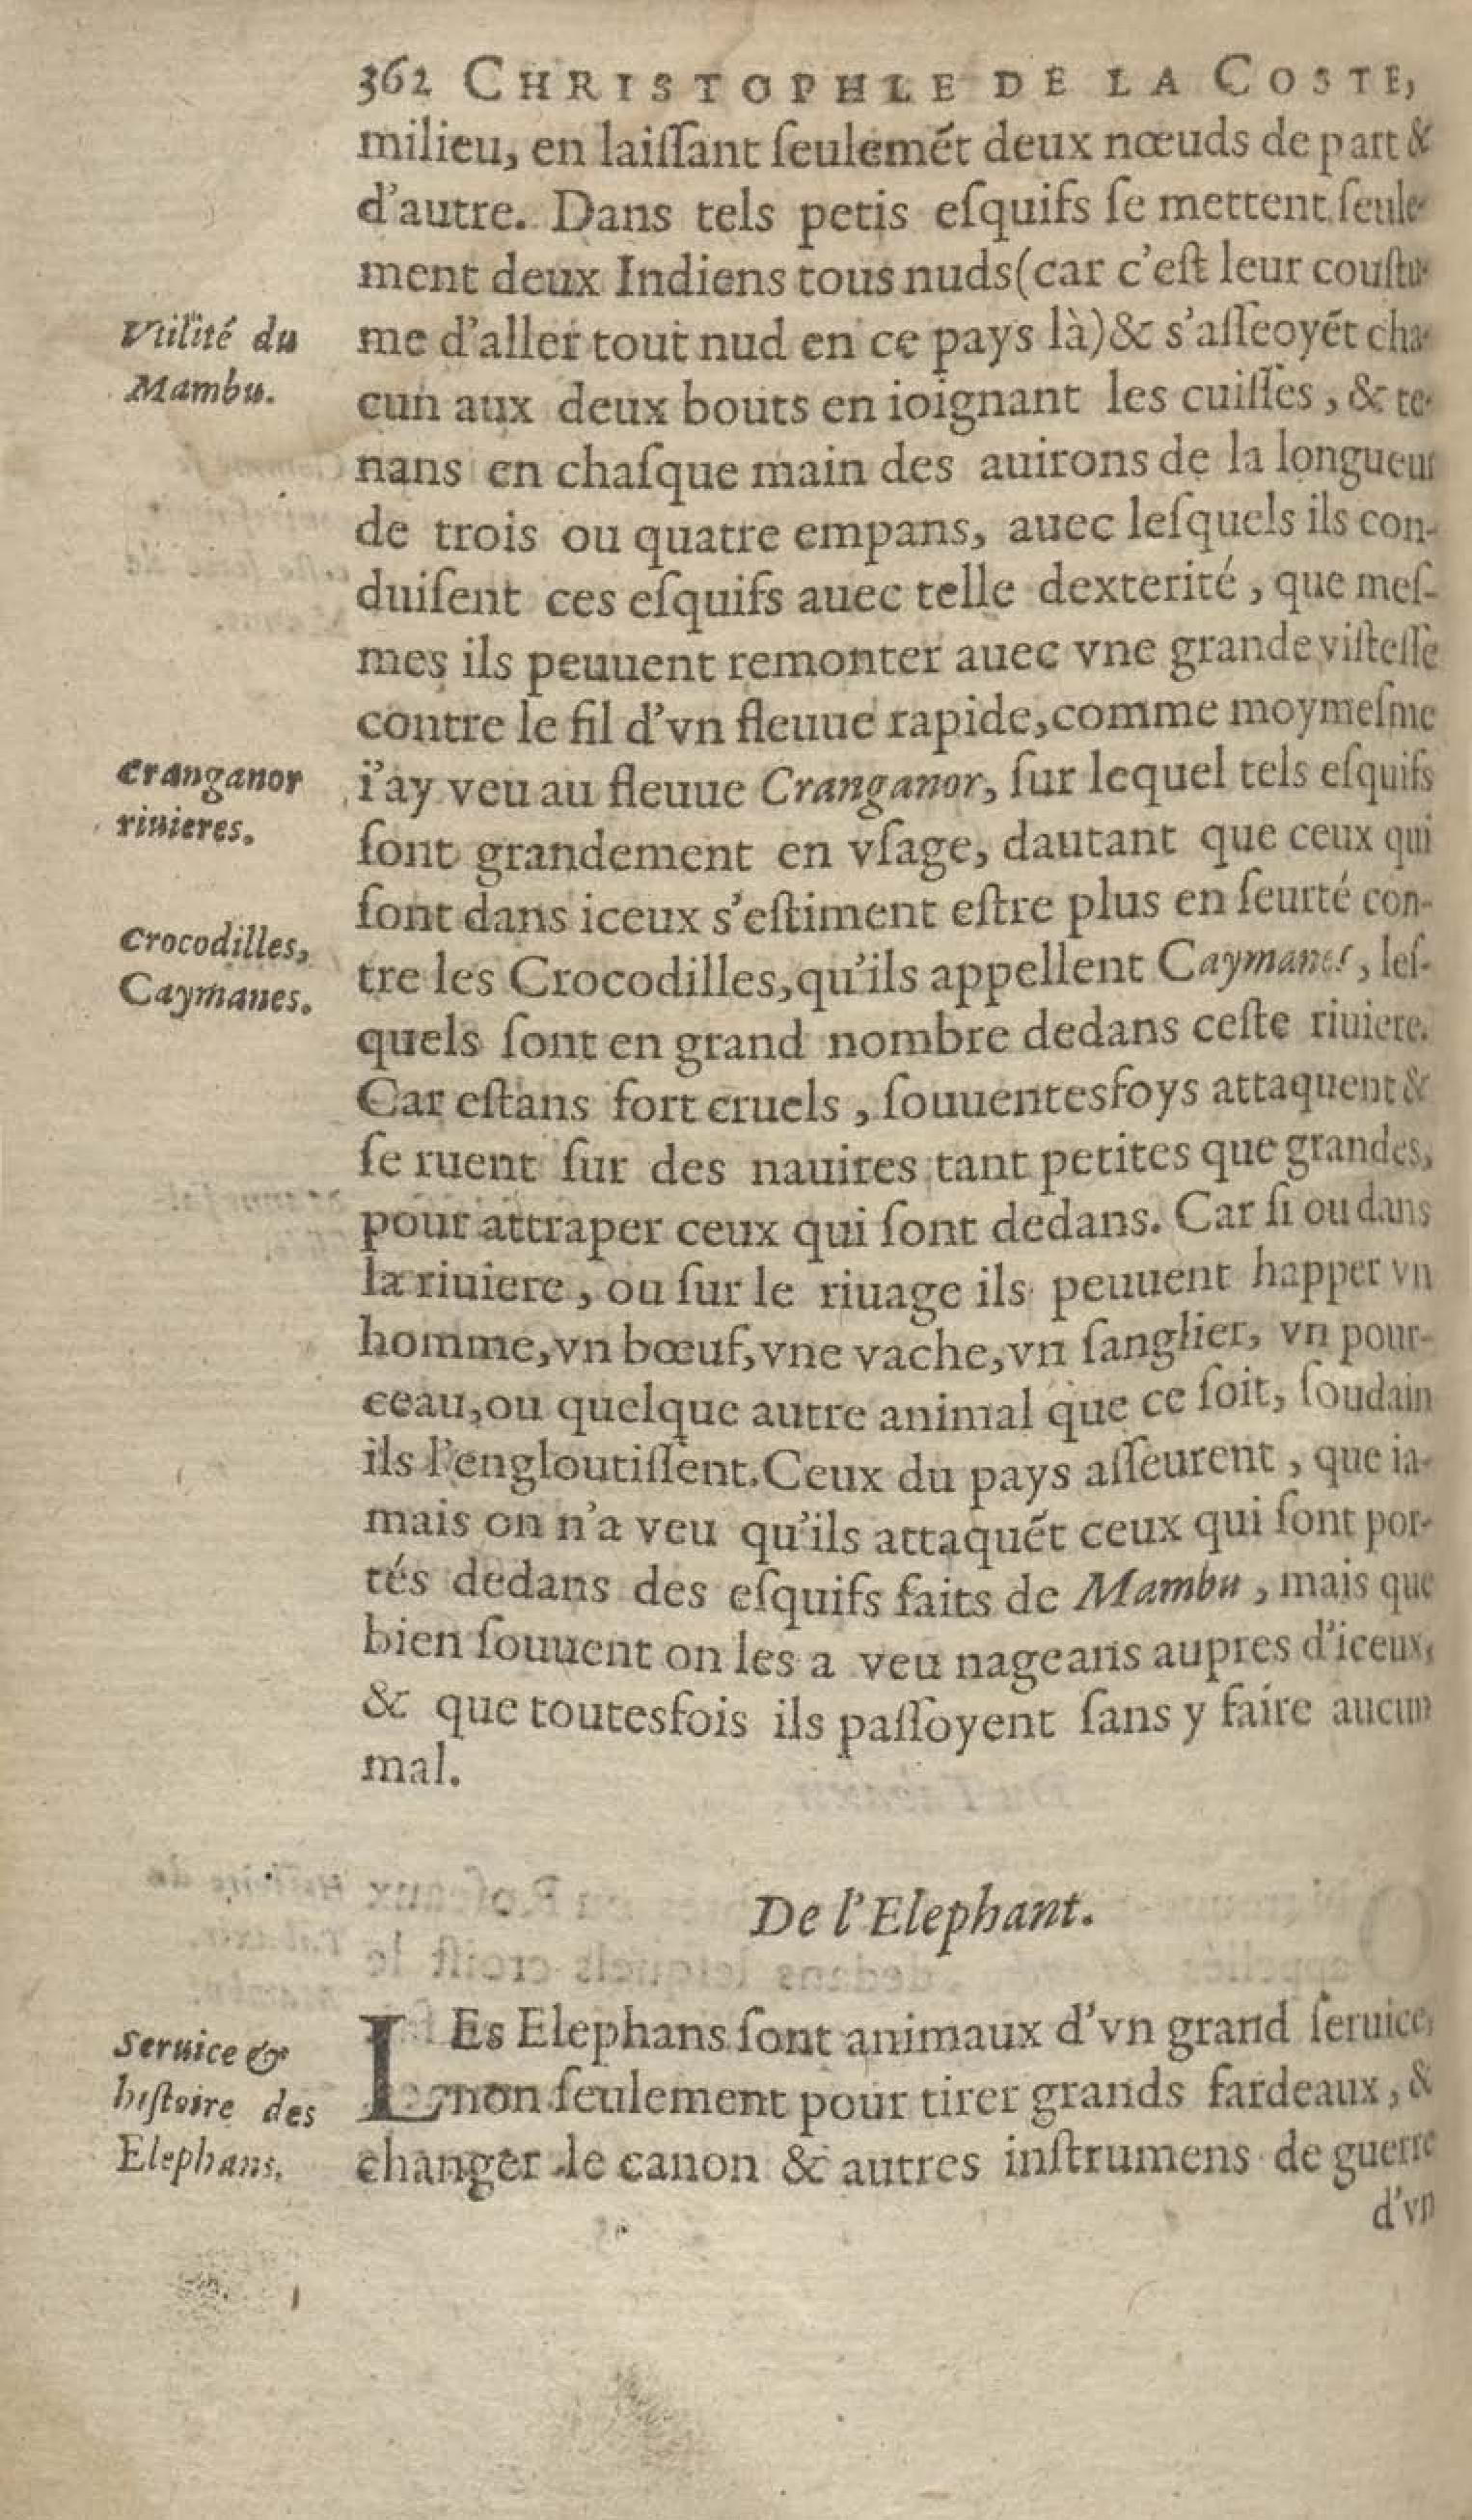 362 CHRISTOPHLE DE LA COSTE,
milieu, en laiſſant ſeulemẽt deux nœuds de part &
d'autre. Dans tels petis eſquifs ſe mettent ſeule-
ment deux Indiens tous nuds (car c'eſt leur couſtu-
me d'aller tout nud en ce pays là) & s'aſſeoyẽt cha-
cun aux deux bouts en ioignant les cuiſſes, & te-
nans en chaſque main des auirons de la longueur
de trois ou quatre empans, auec leſquels ils con-
duiſent ces eſquifs auec telle dexterité, que meſ-
mes ils peuuent remonter auec vne grande viſteſſe
contre le fil d'vn fleuue rapide, comme moymeſme
i'ay veu au fleuue Cranganor, ſur lequel tels eſquifs
ſont grandement en vſage, dautant que ceux qui
ſont dans iceux s'eſtiment eſtre plus en ſeurté con-
tre les Crocodilles, qu'ils appellent Caymanes, leſ-
quels ſont en grand nombre dedans ceſte riuiere.
Car eſtans fort cruels, ſouuentesfoys attaquent &
ſe ruent ſur des nauires tant petites que grandes,
pour attraper ceux qui ſont dedans. Car ſi ou dans
la riuiere, ou ſur le riuage ils peuuent happer vn
homme, vn bœuf, vne vache, vn ſanglier, vn pour-
ceau, ou quelque autre animal que ce ſoit, ſoudain
ils l'engloutiſſent. Ceux du pays aſſeurent, que ia-
mais on n'a veu qu'ils attaquẽt ceux qui ſont por-
tés dedans des eſquifs faits de Mambu, mais que
bien ſouuent on les a veu nageans aupres d'iceux,
& que toutesfois ils paſſoyent ſans y faire aucun
mal.
Vtilité du
Mambu.
Cranganor
riuieres.
Crocodilles,
Caymanes.
De l'Elephant.
LEs Elephans ſont animaux d'vn grand ſeruice,
non ſeulement pour tirer grands fardeaux, &
changer le canon & autres inſtrumens de guerre
d'vn
Seruice &
hiſtoire des
Elephans.